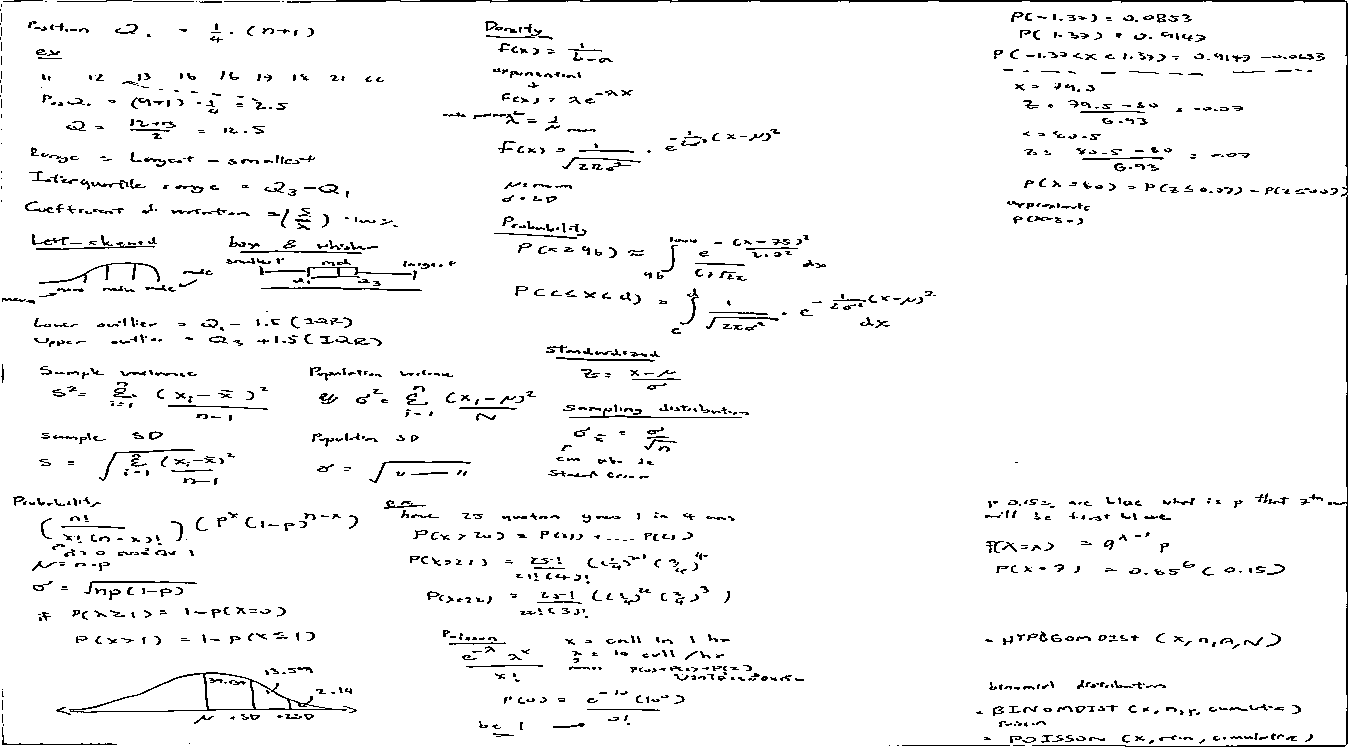 Position Q₁ = 1/4 · (n+1)
ex
11 12 13 16 16 17 18 21 22
Pos Q₁ = (9+1) · 1/4 = 2.5
Q = (12+13)/2 = 12.5
Range = Largest - smallest
Interquartile range = Q₃ - Q₁
Coefficient of variation = (S/x̄) · 100%
Left-skewed
mean median mode
box & whisker
smallest med largest
Q₁ Q₃
Lower outlier = Q₁ - 1.5 (IQR)
Upper outlier = Q₃ + 1.5 (IQR)
Sample variance
S² = Σ i=1 n (xᵢ - x̄)² / n-1
Population variance
σ² = Σ i=1 n (xᵢ - μ)² / N
Sample SD
S = √(Σ i=1 n (xᵢ - x̄)² / n-1)
Population SD
σ = √(" — ")
Probability
(n! / x!(n-x)!) (pˣ (1-p)ⁿ⁻ˣ)
μ = n·p
σ = √np(1-p)
if P(x≥1) = 1-P(x=0)
P(x>1) = 1-P(x≤1)
13.59%
2.14
μ +SD +2SD
Density
f(x) = 1/(b-a)
exponential
f(x) = λe^-λx
λ = 1/μ mean
f(x) = 1/√2πσ² · e^-1/2σ² (x-μ)²
μ = mean
σ = SD
Probability
P(c≤x≤d) = ∫ c d 1/√2πσ² · e^-1/2σ² (x-μ)² dx
Standardized
Z = (x-μ)/σ
Sampling distribution
σx̄ = σ/√n
can also be
ex
have 25 question guess 1 in 4 ans
P(x>20) = P(21) + .... P(25)
P(x=21) = 25!/21!(4)! (1/4)²¹ (3/4)⁴
P(x=22) = 25!/22!(3)! (1/4)²² (3/4)³
Poisson
e^-λ λˣ / x!
x = call in 1 hr
λ = 10 call/hr
P(0) = e⁻¹⁰ (10⁰) / 0!
be 1
P(-1.37) = 0.0853
P(1.37) = 0.9147
P(-1.37<x<1.37) = 0.9147 - 0.0853
x = 79.5
Z = (79.5 - 80)/6.93 = -0.07
x = 80.5
Z = (80.5 - 80)/6.93 = 0.07
approximate
if 0.15% are blue what is p that 7th
will be first blue
P(X=x) = qˣ⁻¹ p
P(x=7) = 0.85⁶ (0.15)
= HYPGEOMDIST (x, n, A, N)
binomial distribution
= BINOMDIST (x, n, p, cumulative)
Poisson
= POISSON (x, mean, cumulative)